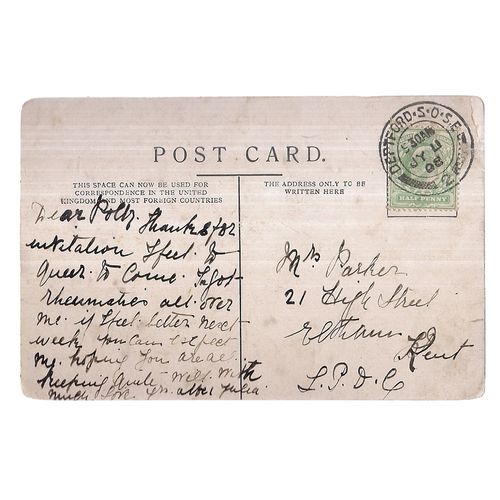 POST CARD.
THIS SPACE CAN NOW BE USED FOR
CORRESPONDENCE IN THE UNITED
KINGDOM AND MOST FOREIGN COUNTRIES
THE ADDRESS ONLY TO BE
WRITTEN HERE
DEPTFORD·S·O·S·E
JY 11
08
HALF PENNY
Dear Polly Thanks for
invitation I feel to
Queer to Come. I got
rheumatics all over
me. if I feel better next
week you can expect
me. hoping you are all
keeping quite well with
much love
Mrs Parker
21 High Street
Eltham
Kent